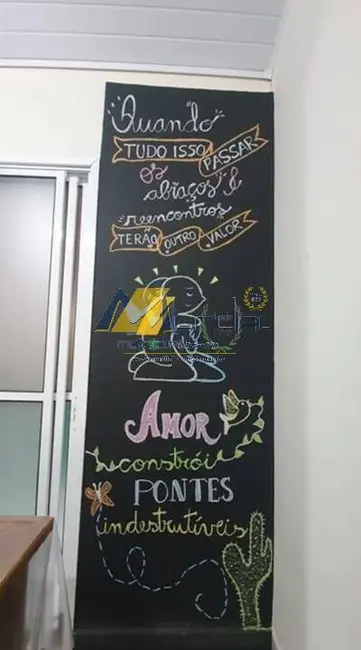 Quando
TUDO ISSO PASSAR
os
abraços e
reencontros
TERÃO OUTRO VALOR
AMOR
constrói
PONTES
indestrutíveis